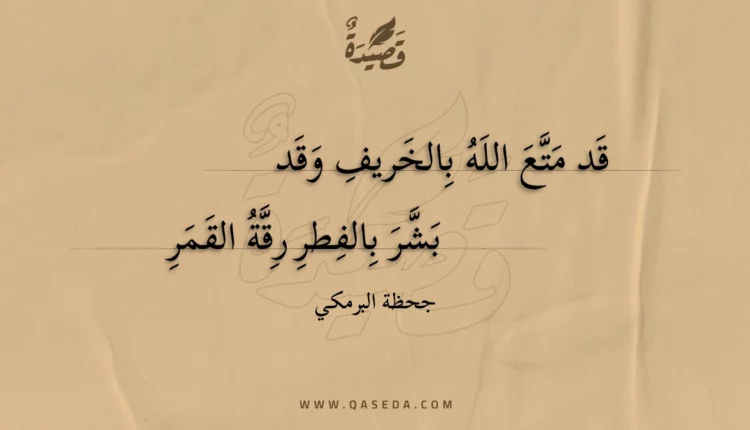 قَصِيْدَةٌ
قَد مَتَّعَ اللَهُ بِالخَريفِ وَقَد
بَشَّرَ بِالفِطرِ رِقَّةُ القَمَرِ
جحظة البرمكي
WWW.QASEDA.COM